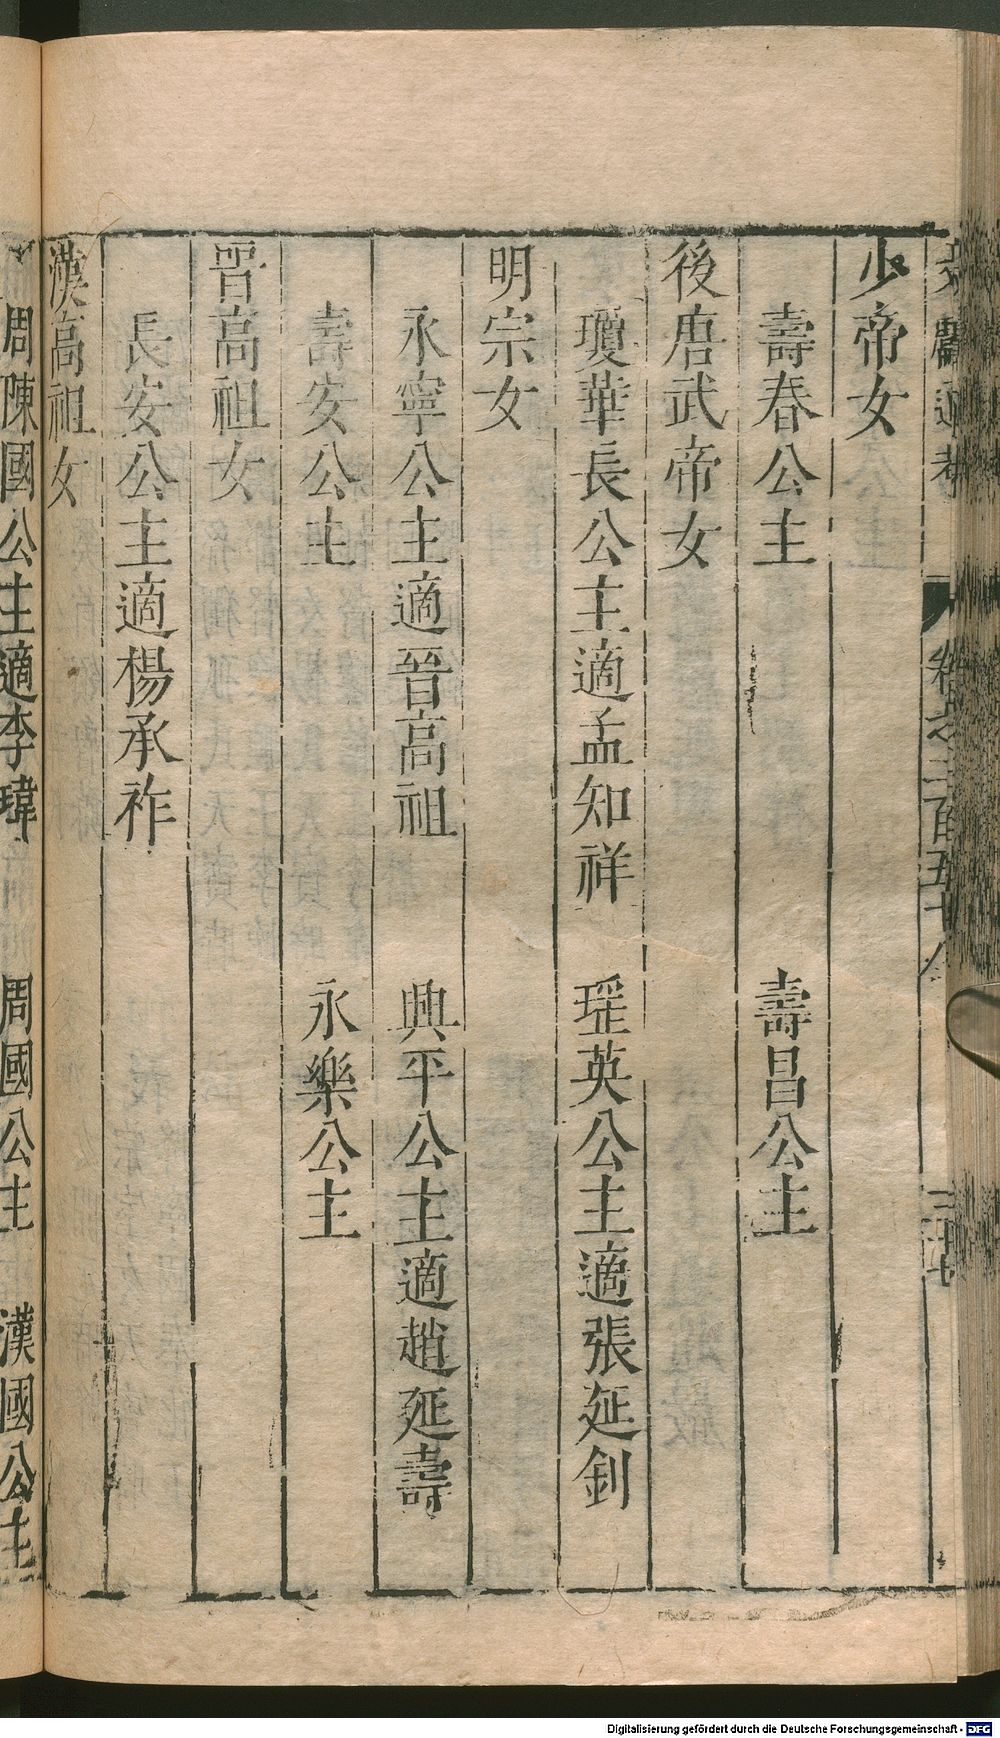 文獻通考 卷之二百五十八
少帝女
壽春公主 壽昌公主
後唐武帝女
瓊華長公主適孟知祥 瑶英公主適張延釗
明宗女
永寧公主適晉高祖 興平公主適趙延壽
壽安公主 永樂公主
晉高祖女
長安公主適楊承祚
漢高祖女
周陳國公主適李瑋 周國公主 漢國公主
Digitalisierung gefördert durch die Deutsche Forschungsgemeinschaft - DFG